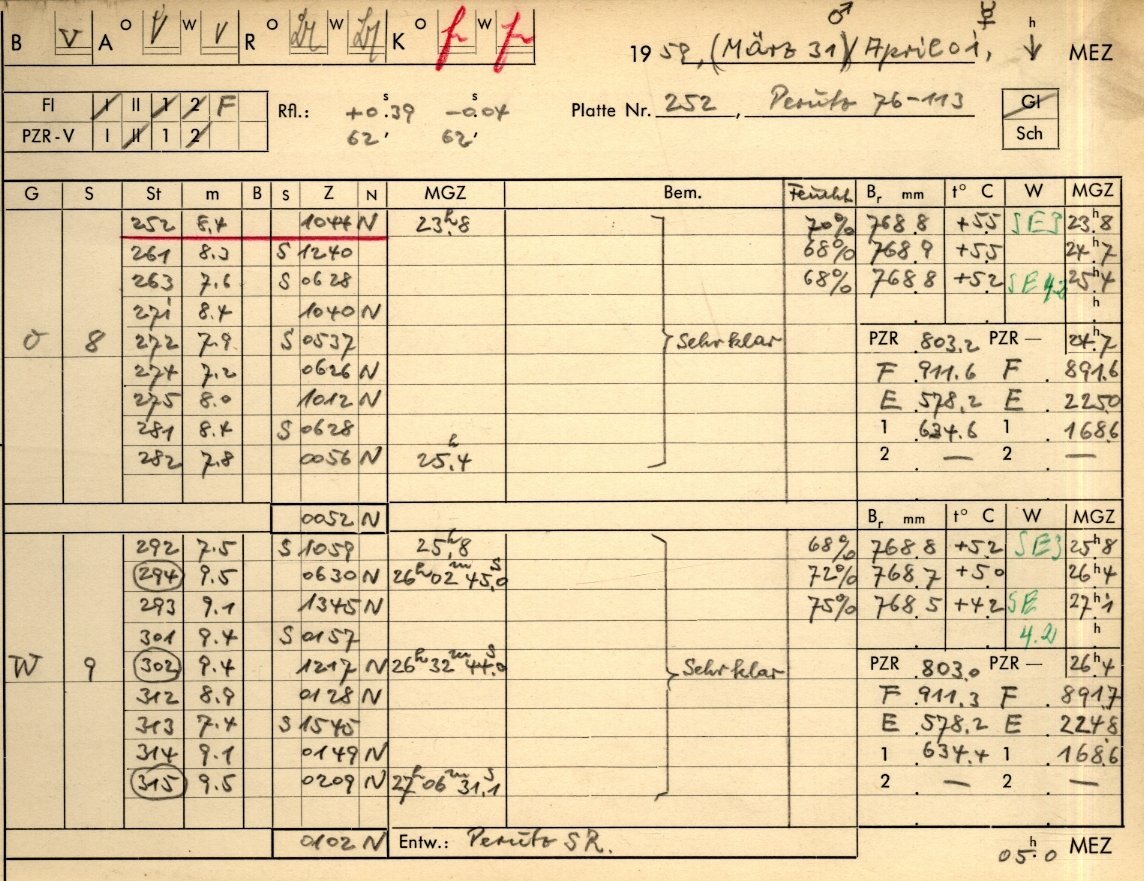 B V A O V W V R O W K O W
♂ ☿ h
19 59, (März 31) April 01, ↓ MEZ
FI I II 1 2 F
PZR-V I II 1 2
Rfl.: +0.39 s -0.04 s
62' 62'
Platte Nr. 252, Perutz 76-113
GI
Sch
G S St m B S Z N MGZ Bem. Feucht. Br mm t° C W MGZ
252 8.4 1044 N 23h.8 70% 768.8 +5.5 SE3 23h.8
261 8.3 S 1240 68% 768.9 +5.5 24h.7
263 7.6 S 0628 68% 768.8 +5.2 SE 4.2 25h.4
271 8.4 1040 N h
O 8 272 7.9 S 0537 Sehr klar PZR 803.2 PZR — 24h.7
274 7.2 0626 N F 911.6 F 891.6
275 8.0 1012 N E 578.2 E 225.0
281 8.4 S 0628 1 634.6 1 168.6
282 7.8 0056 N 25h.4 2 — 2 —
0052 N Br mm t° C W MGZ
292 7.5 S 1059 25h.8 68% 768.8 +5.2 SE3 25h.8
294 9.5 0630 N 26h 02m 45s.0 72% 768.7 +5.0 26h.4
293 9.1 1345 N 75% 768.5 +4.2 SE 27h.1
301 9.4 S 0157 4.2 h
W 9 302 9.4 1217 N 26h 32m 44s.0 Sehr klar PZR 803.0 PZR — 26h.4
312 8.9 0128 N F 911.3 F 891.7
313 7.4 S 1545 E 578.2 E 224.8
314 9.1 0149 N 1 634.4 1 168.6
315 9.5 0209 N 27h 06m 31s.1 2 — 2 —
0102 N Entw.: Perutz SR. 05h.0 MEZ